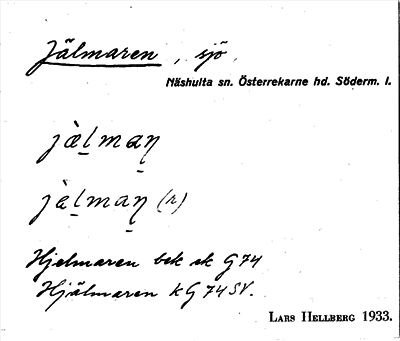 Jälmaren, sjö,
Näshulta sn. Österrekarne hd. Söderm. l.
jälmaŋ
jälmaŋ (r)
Hjelmaren bek ek G74
Hjälmaren kG74SV.
LARS HELLBERG 1933.